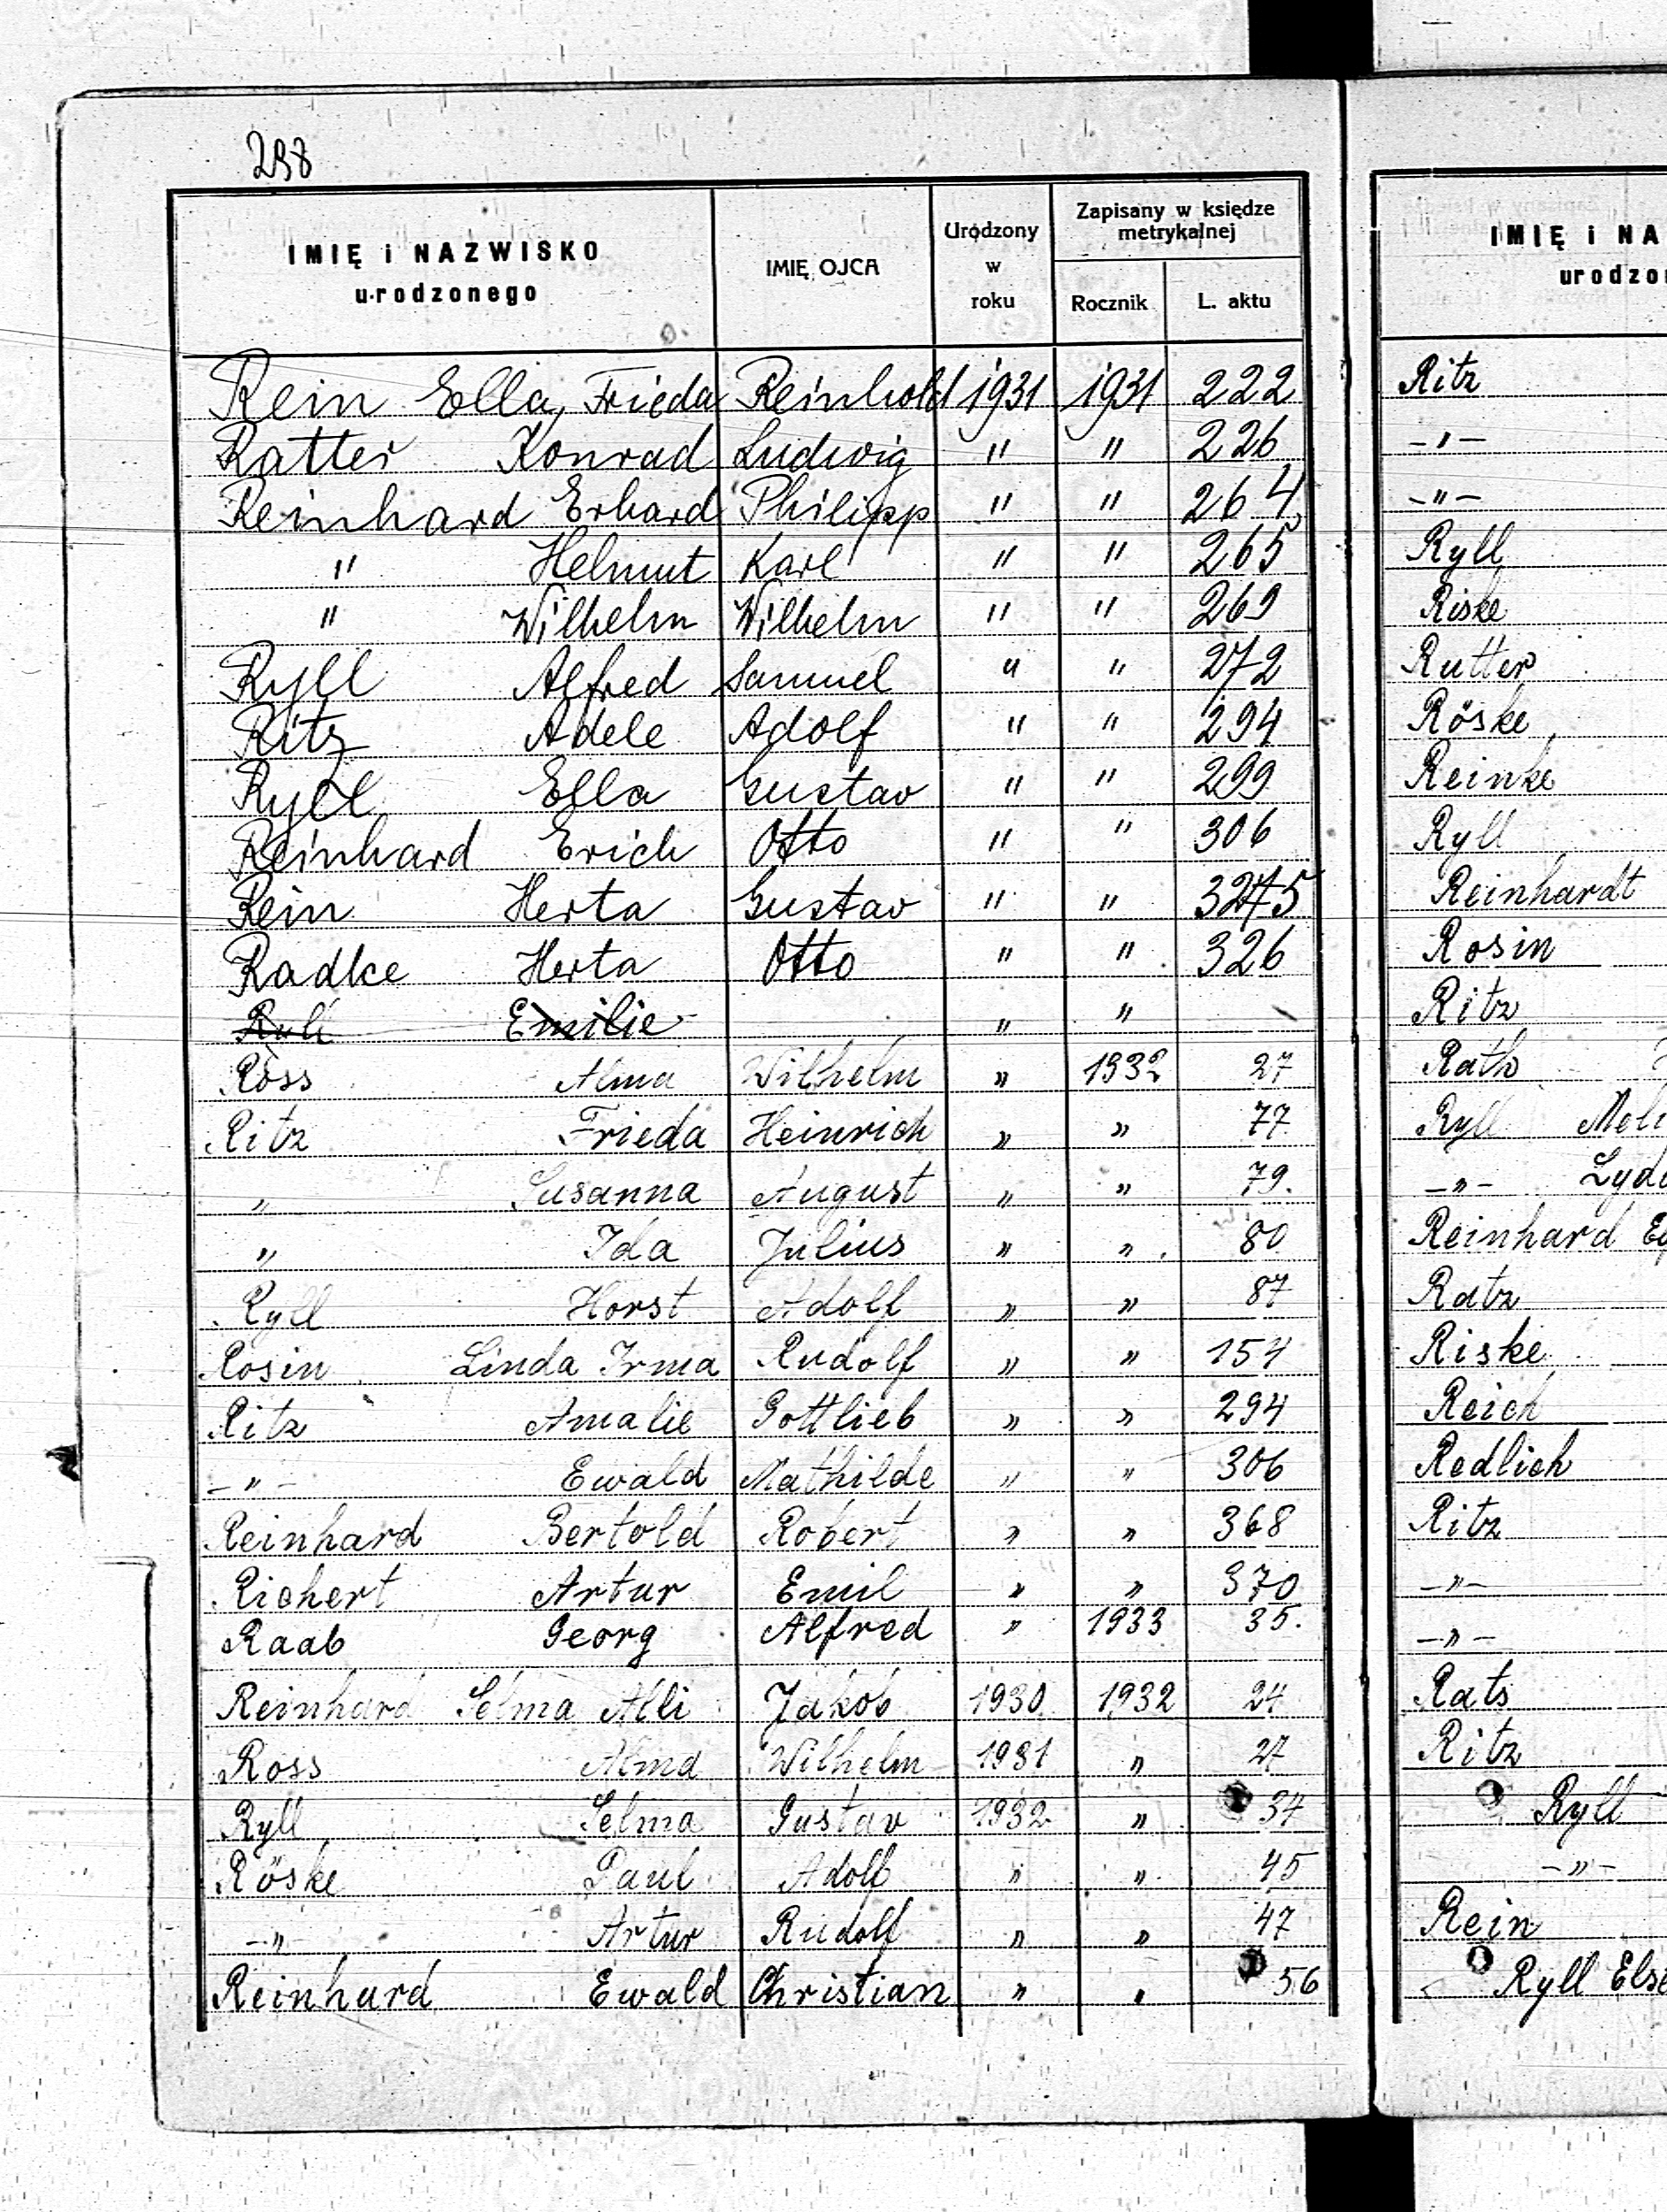 298
IMIĘ i NAZWISKO
urodzonego
IMIĘ OJCA
Urodzony
w
roku
Zapisany w księdze
metrykalnej
Rocznik
L. aktu
Rein Ella, Frieda Reinhold 1931 1931 222
Ratter Konrad Ludwig " " 226
Reinhard Erhard Philipp " " 264
" Helmut Karl " " 265
" Wilhelm Wilhelm " " 269
Ryll Alfred Samuel " " 272
Ritz Adele Adolf " " 294
Ryll Ella Gustav " " 299
Reinhard Erich Otto " " 306
Rein Herta Gustav " "
Radke Herta Otto " " 326
Ryll Emilie " "
Ross Alma Wilhelm " 1932 27
Ritz Frieda Heinrich " " 77
" Susanna August " " 79.
" Ida Julius " " 80
Ryll Horst Adolf " " 87
Rosin Linda Irma Rudolf " " 154
Ritz Amalie Gottlieb " " 294
-"- Ewald Mathilde " " 306
Reinhard Bertold Robert " " 368
Richert Artur Emil " " 370
Raab Georg Alfred " 1933 35.
Reinhard Selma Alli Jakob 1930 1932 24
Ross Alma Wilhelm 1931 " 27
Ryll Selma Gustav 1932 " 34
Röske Paul Adolf " " 45
-"- Artur Rudolf " " 47
Reinhard Ewald Christian " " 56
IMIĘ i NA
urodzo
Ritz
-"-
-"-
Ryll
Riske
Rutter
Röske
Reinke
Ryll
Reinhardt
Rosin
Ritz
Rath
Ryll Meli
-"- Lyd
Reinhard
Ratz
Riske
Reich
Redlich
Ritz
-"-
-"-
Rats
Ritz
Ryll
-"-
Rein
Ryll Else